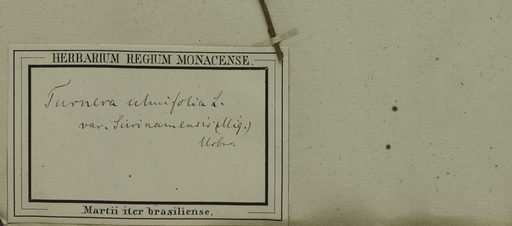 HERBARIUM REGIUM MONACENSE.
Turnera ulmifolia L.
var. Surinamensis (Miq.)
Urban.
Martii iter brasiliense.